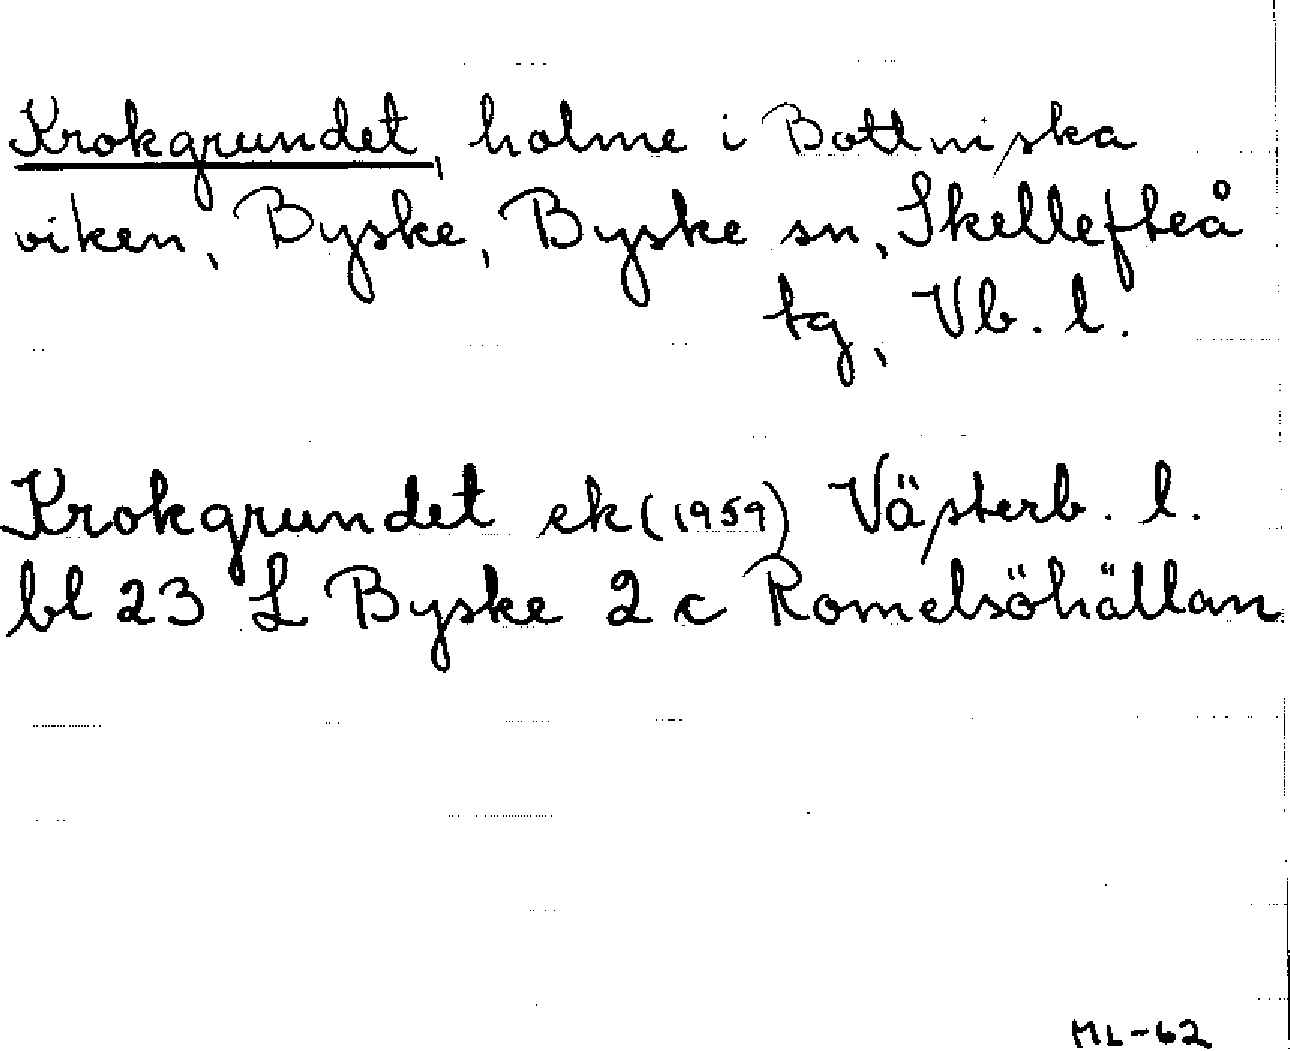 Krokgrundet, holme i Bottniska
viken, Byske, Byske sn, Skellefteå
tg, Vb. l.
Krokgrundet ek (1959) Västerb. l.
bl 23 L Byske 2 c Romelsöhällan
ML-62